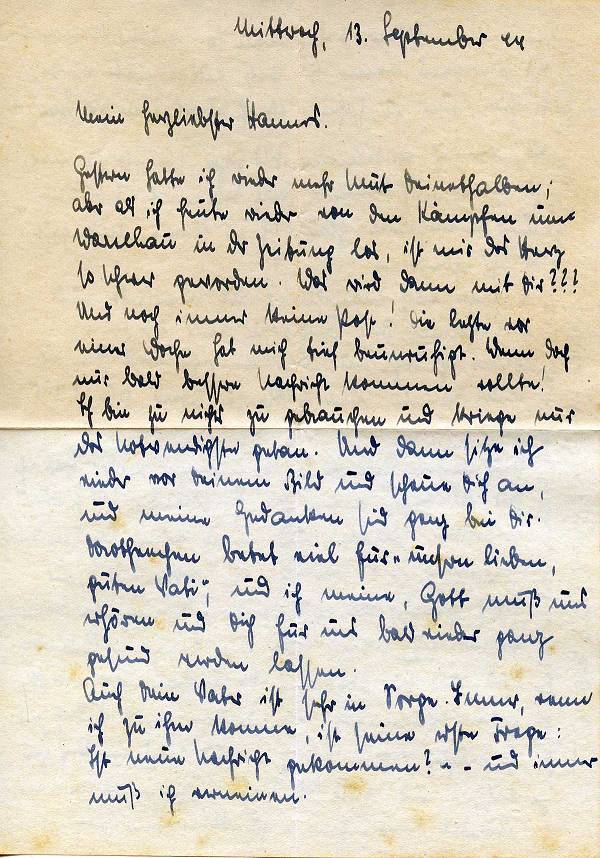 Mittwoch, 13. September 44
Mein herzliebster Hannes.
Gestern hatte ich wieder mehr Mut Deinethalben;
aber als ich heute wieder von den Kämpfen um
Warschau in der Zeitung las, ist mir das Herz
so schwer geworden. Was wird dann mit Dir???
Und noch immer keine Post! Die letzte vor
einer Woche hat mich tief beunruhigt. Wenn doch
nur bald bessere Nachricht kommen wollte!
Ich bin zu nichts zu gebrauchen und kriege nur
das Notwendigste getan. Und dann sitze ich
wieder vor Deinem Bild und schaue Dich an,
und meine Gedanken sind ganz bei Dir.
Dorotheachen betet viel für „unsern lieben,
guten Vati“, und ich meine, Gott muß uns
erhören und Dich für uns bald wieder ganz
gesund werden lassen.
Auch Dein Vater ist sehr in Sorge. Immer, wenn
ich zu ihm komme, ist seine erste Frage:
Ist neue Nachricht gekommen? - - und immer
muß ich verneinen.